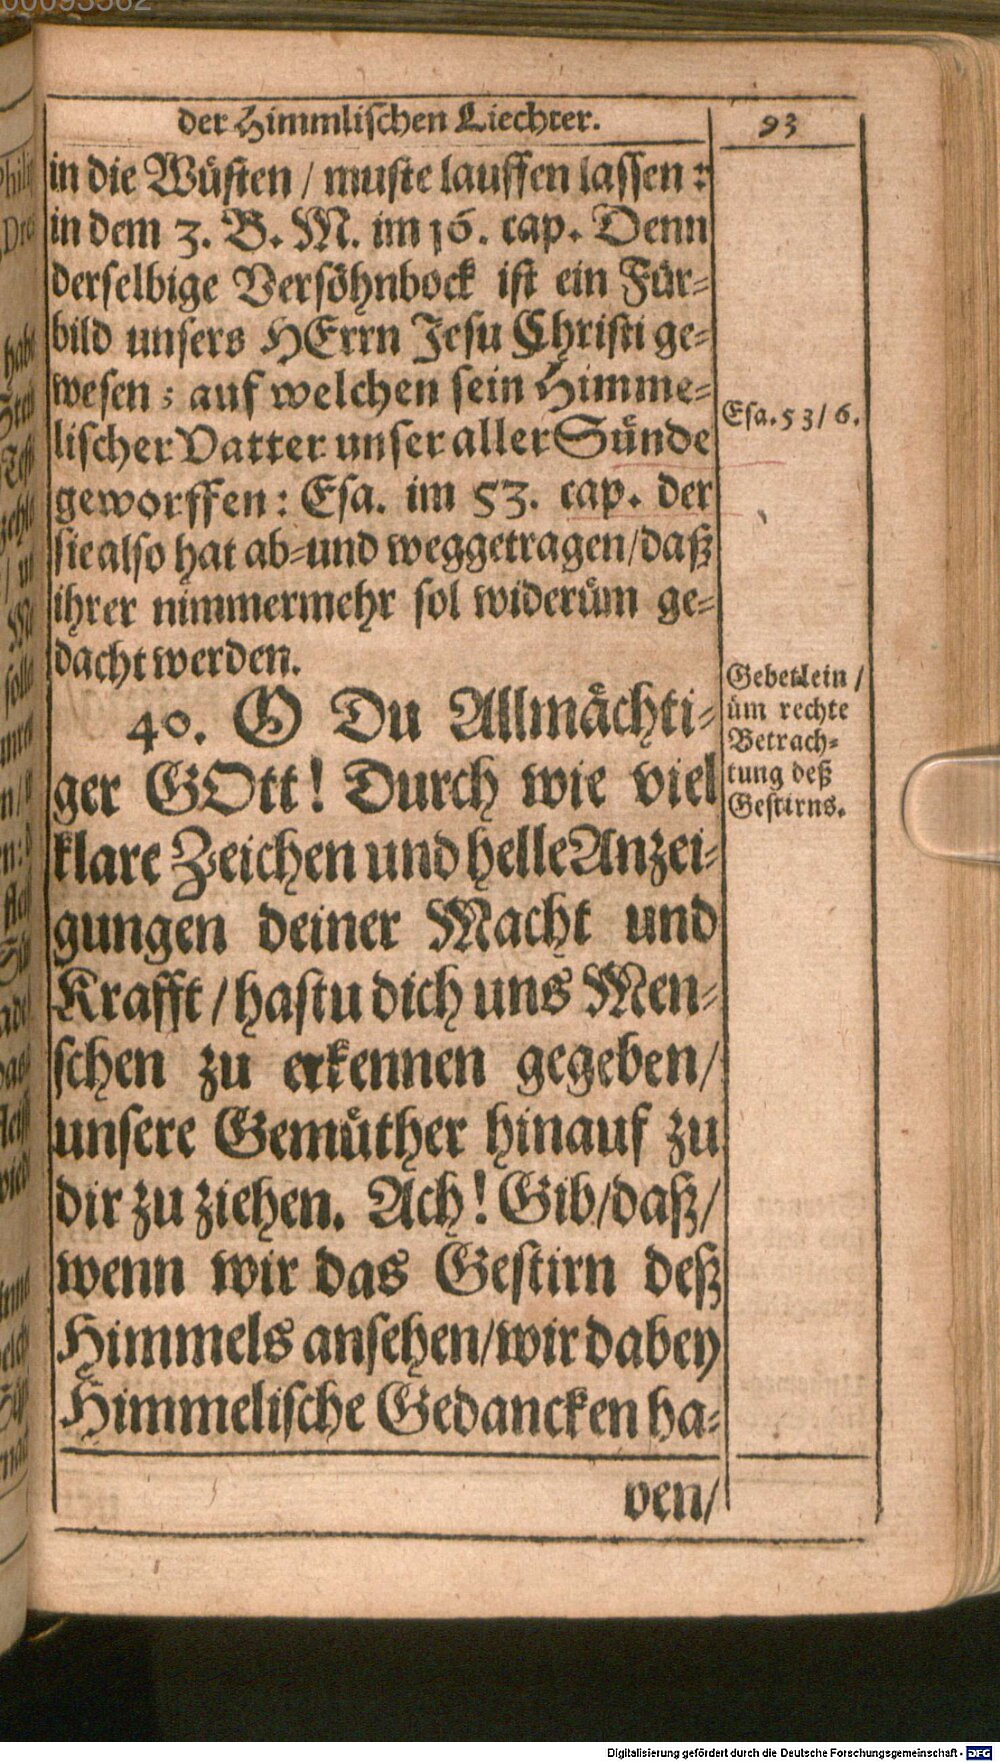 00093562
der Himmlischen Liechter.
93
in die Wüsten / muste lauffen lassen:
in dem 3. B. M. im 16. cap. Denn
derselbige Versöhnbock ist ein Für=
bild unsers HErrn Jesu Christi ge=
wesen; auf welchen sein Himme=
lischer Vatter unser aller Sünde
geworffen: Esa. im 53. cap. der
sie also hat ab=und weggetragen/daß
ihrer nimmermehr sol widerüm ge=
dacht werden.
Esa.53/6.
40. O Du Allmächti=
ger GOtt! Durch wie viel
klare Zeichen und helle Anzei=
gungen deiner Macht und
Krafft / hastu dich uns Men=
schen zu erkennen gegeben/
unsere Gemüther hinauf zu
dir zu ziehen. Ach! Gib/daß/
wenn wir das Gestirn deß
Himmels ansehen/wir dabey
Himmelische Gedancken ha=
ven/
Gebetlein /
üm rechte
Betrach=
tung deß
Gestirns.
Digitalisierung gefördert durch die Deutsche Forschungsgemeinschaft - DFG